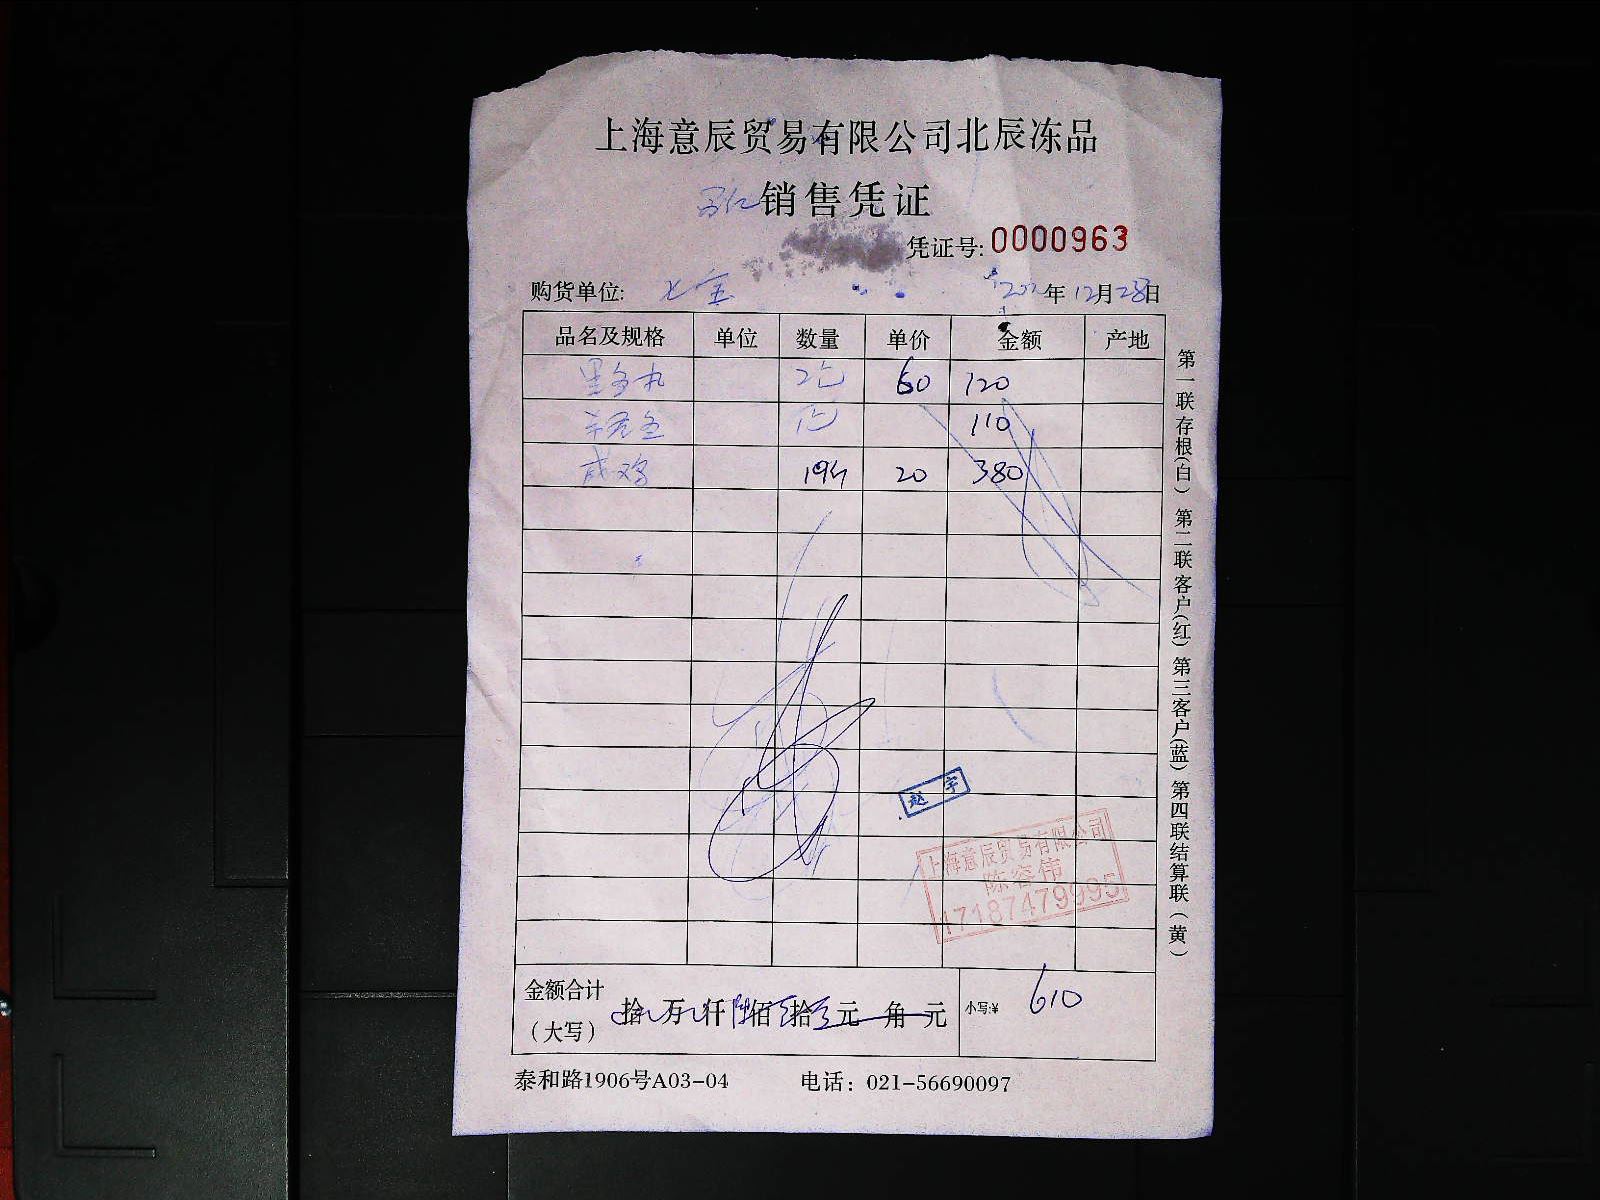 上海意辰贸易有限公司北辰冻品
销售凭证
凭证号: 0000963
购货单位: 七宝 年12月28日
品名及规格 单位 数量 单价 金额 产地
2包 60 120
1包 110
咸鸡 19只 20 380
赵宇
上海意辰贸易有限公司
陈容伟
17187479995
金额合计 拾 万 仟 陆佰 壹拾 元 角 元 小写:¥ 610
(大写)
泰和路1906号A03-04 电话: 021-56690097
第一联存根(白) 第二联客户(红) 第三客户(蓝) 第四联结算联(黄)